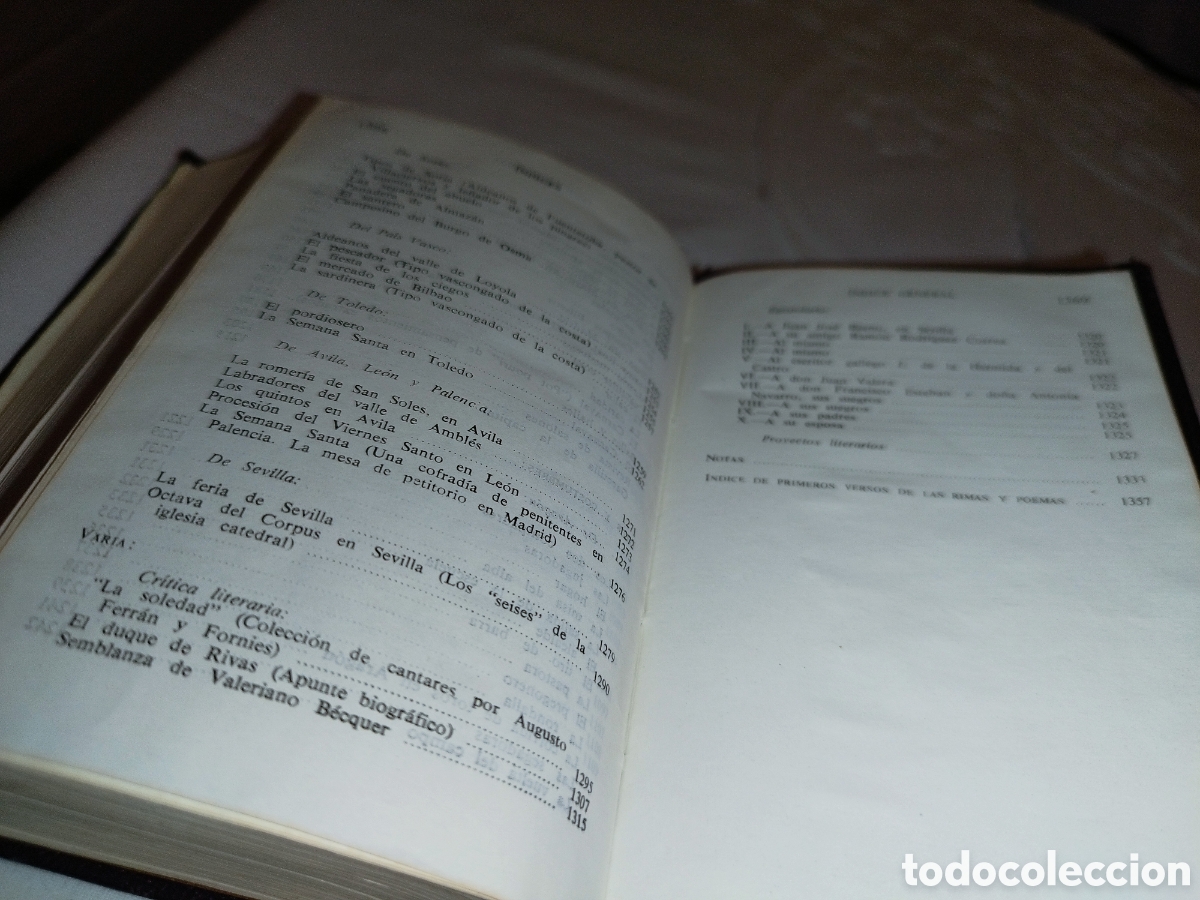 De Soria:
Tipos de Soria (Aldeanos de Fuentetoba
El
Las segadoras
Panadera de Almazán
El santero
Campesino del Burgo de Osma
Del País Vasco:
Aldeanos del valle de Loyola
El pescador (Tipo vascongado de la costa)
La fiesta de los ciegos
El mercado de Bilbao
La sardinera (Tipo vascongado de la costa)
De Toledo:
El pordiosero
La Semana Santa en Toledo
De Avila, León y Palencia:
La romería de San Soles, en Avila
Labradores del valle de Amblés
Los quintos en Avila
Procesión del Viernes Santo en León
La Semana Santa (Una cofradía de penitentes en
Palencia. La mesa de petitorio en Madrid)
1271
1272
1273
1274
1276
De Sevilla:
La feria de Sevilla
Octava del Corpus en Sevilla (Los "seises" de la
iglesia catedral)
1279
1290
VARIA:
Crítica literaria:
"La soledad" (Colección de cantares por Augusto
Ferrán y Fornies) 1295
El duque de Rivas (Apunte biográfico) 1307
Semblanza de Valeriano Bécquer 1315
INDICE GENERAL 1369
Epistolario:
III.—Al mismo 1321
IV.—Al mismo
Castro
VI.—A don Juan Valera 1322
VII.—A don Francisco Esteban y doña Antonia
Navarro, sus suegros 1323
VIII.—A sus suegros 1324
IX.—A sus padres 1325
X.—A su esposa 1325
Proyectos literarios 1327
NOTAS 1333
INDICE DE PRIMEROS VERSOS DE LAS RIMAS Y POEMAS 1357
todocoleccion